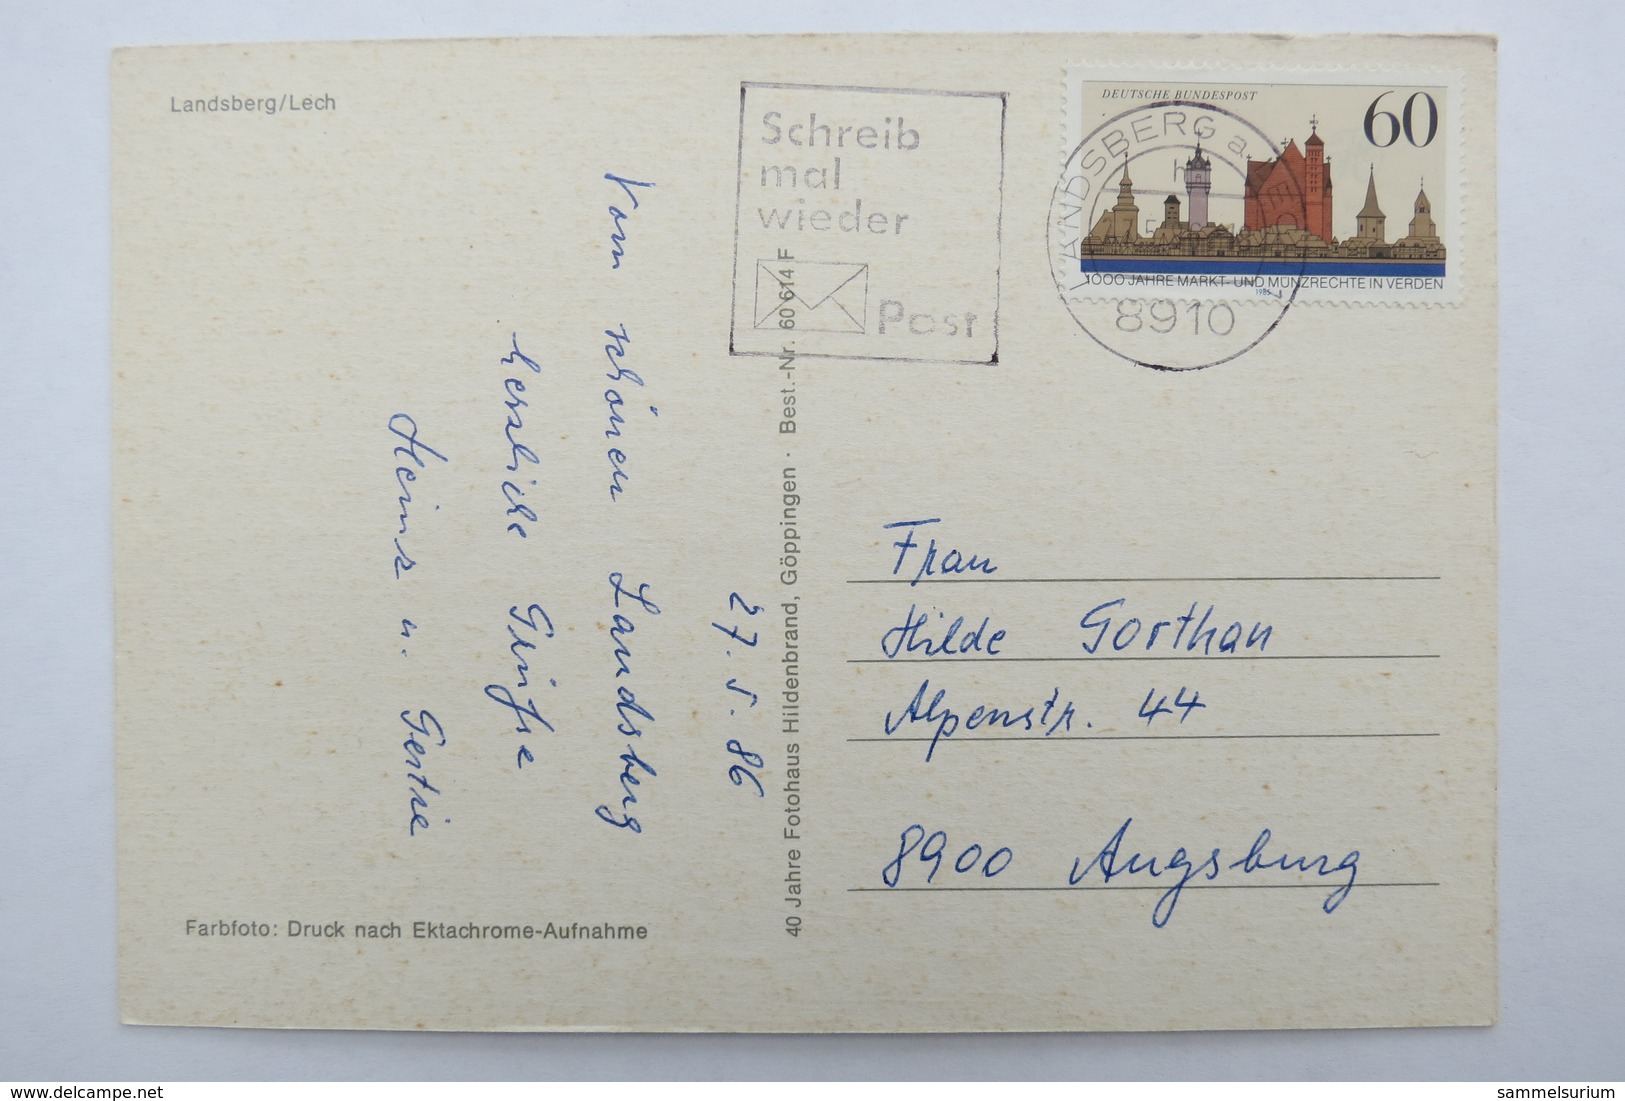 Landsberg/Lech
27. 5. 86
Vom schönen Landsberg
herzliche Grüße
Heinz u.
Farbfoto: Druck nach Ektachrome-Aufnahme
40 Jahre Fotohaus Hildenbrand, Göppingen · Best.-Nr. 60 614 F
Schreib
mal
wieder
Post
LANDSBERG a.
8910
DEUTSCHE BUNDESPOST
60
1000 JAHRE MARKT- UND MÜNZRECHTE IN VERDEN
1985
Frau
Hilde Gorthan
Alpenstr. 44
8900 Augsburg
delcampe.net
sammelsurium